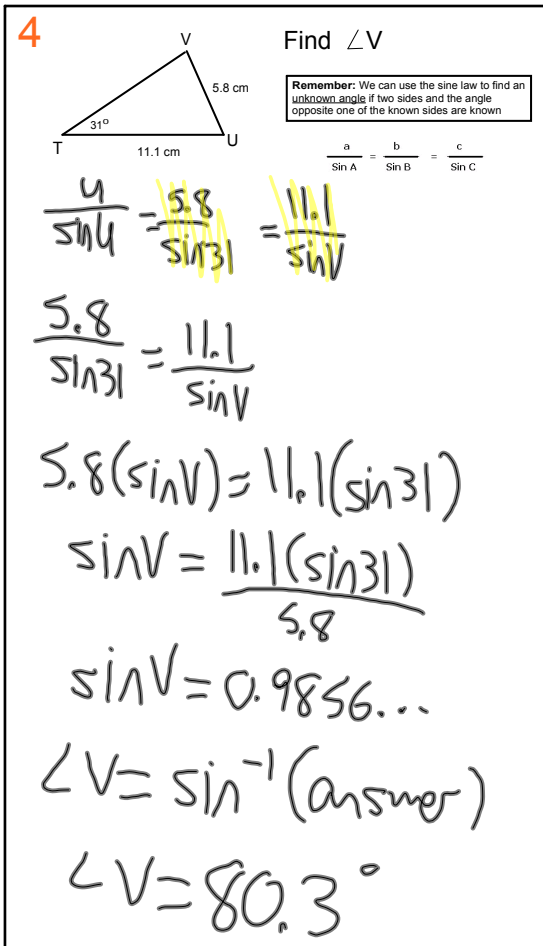 4
Find ∠V
V
5.8 cm
31°
T
U
11.1 cm
Remember: We can use the sine law to find an
unknown angle if two sides and the angle
opposite one of the known sides are known
a/Sin A = b/Sin B = c/Sin C
u/sinu = 5.8/sin31 = 11.1/sinV
5.8/sin31 = 11.1/sinV
5.8(sinV) = 11.1(sin31)
sinV = 11.1(sin31)/5.8
sinV = 0.9856...
∠V = sin⁻¹(answer)
∠V = 80.3°